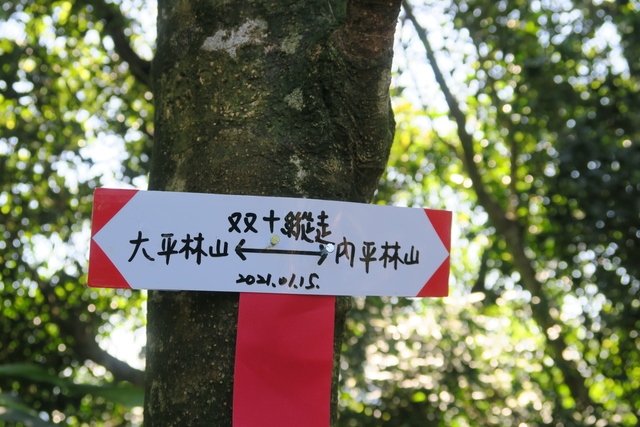 双十縱走
大平林山 ↔ 內平林山
2021.01.15.